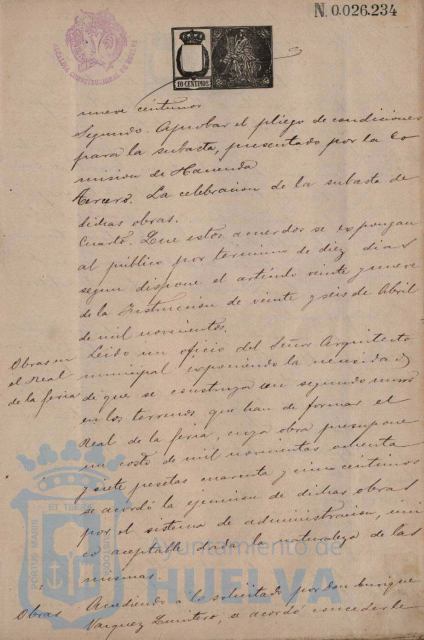 N. 0.026.234
ALCALDIA CONSTITUCIONAL DE HUELVA
10 CENTIMOS
nueve centimos
Segundo. Aprobar el pliego de condiciones
para la subasta, presentado por la Co
mision de Hacienda
Tercero. La celebracion de la subasta de
dichas obras.
Cuarto. Que estos acuerdos se expongan
al público por termino de diez dias
segun dispone el artículo veinte y nueve
de la Instruccion de veinte y seis de Abril
de mil novecientos.
Obras en
el Real
de la feria
Leido un oficio del Señor Arquitecto
municipal exponiendo la necesidad
de que se construya un segundo muro
en los terrenos que han de formar el
Real de la feria, cuya obra presupone
un costo de mil novecientas ochenta
y siete pesetas cuarenta y cinco centimos
se acordó la ejecucion de dichas obras
por el sistema de administracion, uni
co aceptable dada la naturaleza de las
mismas.
Obras
Accediendo a lo solicitado por don Enrique
Vazquez Quintero, se acordó concederle
PORTUS MARIS ET TERRAE CUSTODIA
Ayuntamiento de
HUELVA